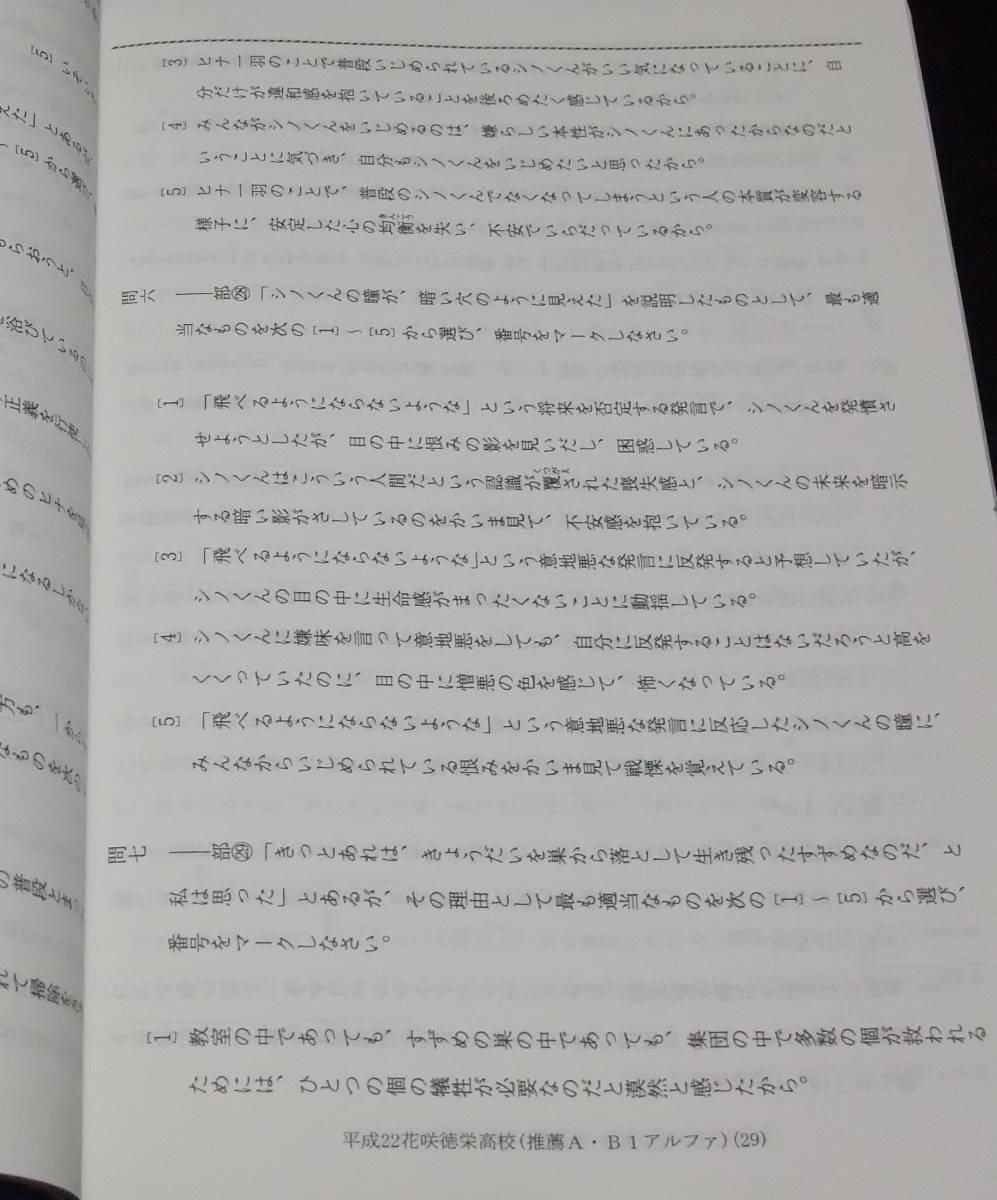 [3] ヒナ一羽のことで普段いじめられているシノくんがいい気になっていることに、自
分だけが違和感を抱いていることを後ろめたく感じているから。
[4] みんながシノくんをいじめるのは、嫌らしい本性がシノくんにあったからなのだと
いうことに気づき、自分もシノくんをいじめたいと思ったから。
[5] ヒナ一羽のことで、普段のシノくんでなくなってしまうという人の本質が変容する
様子に、安定した心の均衡を失い、不安でいらだっているから。
きんこう
問六 ――部㉘「シノくんの瞳が、暗い穴のように見えた」を説明したものとして、最も適
当なものを次の[1]～[5]から選び、番号をマークしなさい。
[1] 「飛べるようにならないような」という将来を否定する発言で、シノくんを発憤さ
せようとしたが、目の中に恨みの影を見いだし、困惑している。
[2] シノくんはこういう人間だという認識が覆された喪失感と、シノくんの未来を暗示
くつがえ
する暗い影がさしているのをかいま見て、不安感を抱いている。
[3] 「飛べるようにならないような」という意地悪な発言に反発すると予想していたが、
シノくんの目の中に生命感がまったくないことに動揺している。
[4] シノくんに嫌味を言って意地悪をしても、自分に反発することはないだろうと高を
くくっていたのに、目の中に憎悪の色を感じて、怖くなっている。
[5] 「飛べるようにならないような」という意地悪な発言に反応したシノくんの瞳に、
みんなからいじめられている恨みをかいま見て戦慄を覚えている。
問七 ――部㉙「きっとあれは、きょうだいを巣から落として生き残ったすずめなのだ、と
私は思った」とあるが、その理由として最も適当なものを次の[1]～[5]から選び、
番号をマークしなさい。
[1] 教室の中であっても、すずめの巣の中であっても、集団の中で多数の個が救われる
ためには、ひとつの個の犠牲が必要なのだと漠然と感じたから。
平成22花咲徳栄高校(推薦A・B1アルファ)(29)